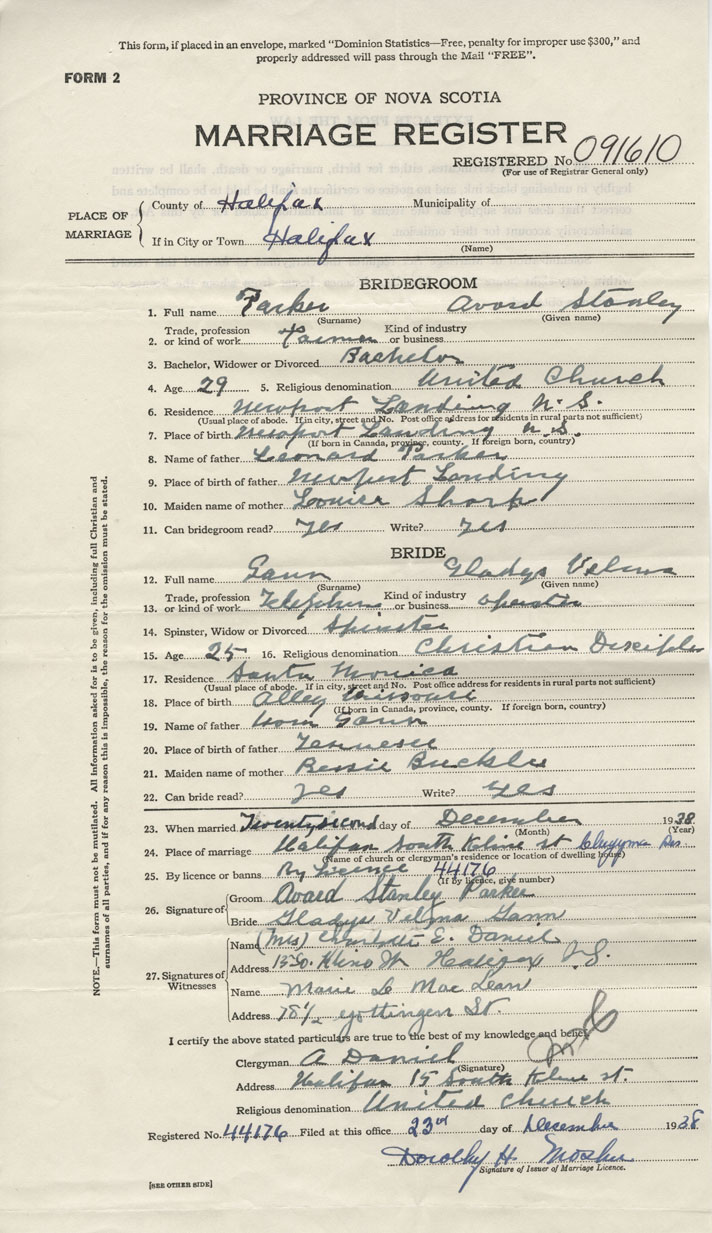 This form, if placed in an envelope, marked "Dominion Statistics—Free, penalty for improper use $300," and
properly addressed will pass through the Mail "FREE".
FORM 2
PROVINCE OF NOVA SCOTIA
MARRIAGE REGISTER
REGISTERED No. 091610
(For use of Registrar General only)
PLACE OF MARRIAGE
County of Halifax Municipality of
If in City or Town Halifax
(Name)
BRIDEGROOM
1. Full name Parker Avard Stanley
(Surname) (Given name)
2. Trade, profession or kind of work Farmer Kind of industry or business
3. Bachelor, Widower or Divorced Bachelor
4. Age 29 5. Religious denomination United Church
6. Residence Newport Landing N.S.
(Usual place of abode. If in city, street and No. Post office address for residents in rural parts not sufficient)
7. Place of birth Newport Landing N.S.
(If born in Canada, province, county. If foreign born, country)
8. Name of father Leonard Parker
9. Place of birth of father Newport Landing
10. Maiden name of mother Louise Sharp
11. Can bridegroom read? Yes Write? Yes
BRIDE
12. Full name Gann Gladys Velma
(Surname) (Given name)
13. Trade, profession or kind of work Telephone Kind of industry or business operator
14. Spinster, Widow or Divorced Spinster
15. Age 25 16. Religious denomination Christian Disciples
17. Residence Santa Monica
(Usual place of abode. If in city, street and No. Post office address for residents in rural parts not sufficient)
18. Place of birth Alley Missouri
(If born in Canada, province, county. If foreign born, country)
19. Name of father Gann
20. Place of birth of father Tennessee
21. Maiden name of mother Bessie Buckler
22. Can bride read? Yes Write? Yes
23. When married Twenty second day of December 1938
(Month) (Year)
24. Place of marriage Halifax South Kline st Clergyman Res
(Name of church or clergyman's residence or location of dwelling house)
25. By licence or banns By Licence 44176
(If by licence, give number)
26. Signature of
Groom Avard Stanley Parker
Bride Gladys Velma Gann
27. Signatures of Witnesses
Name (Mrs) Charlotte E. Daniel
Address 15 So. Kline St Halifax N.S.
Name Marie L MacLean
Address 78½ Gottingen St.
I certify the above stated particulars are true to the best of my knowledge and belief.
Clergyman A Daniel
(Signature)
Address Halifax 15 South Kline st.
Religious denomination United Church
Registered No. 44176 Filed at this office 23rd day of December 1938
Dorothy H. Mosher
Signature of Issuer of Marriage Licence.
[SEE OTHER SIDE]
NOTE.—This form must not be mutilated. All Information asked for is to be given, including full Christian and
surnames of all parties, and if for any reason this is impossible, the reason for the omission must be stated.